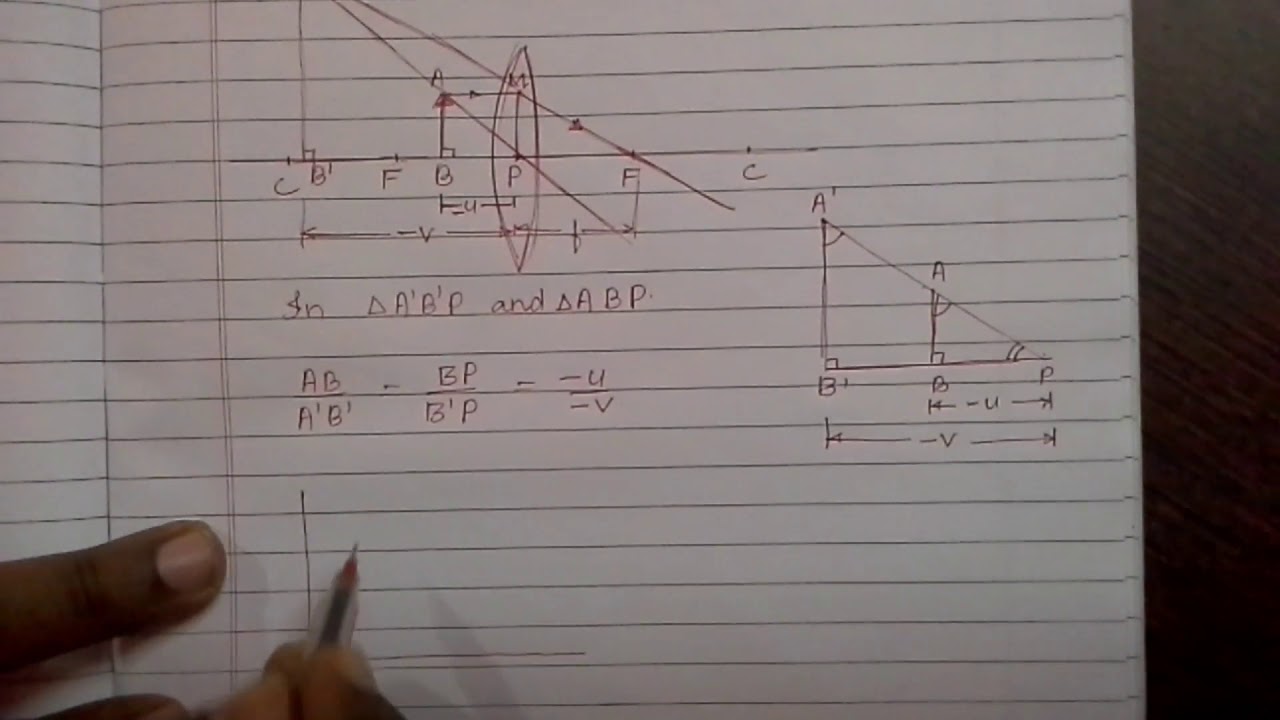 A M
C B' F B P F C
-u
-v f
In ΔA'B'P and ΔABP.
AB/A'B' - BP/B'P - -u/-v
A'
A
B' B P
-u
-v